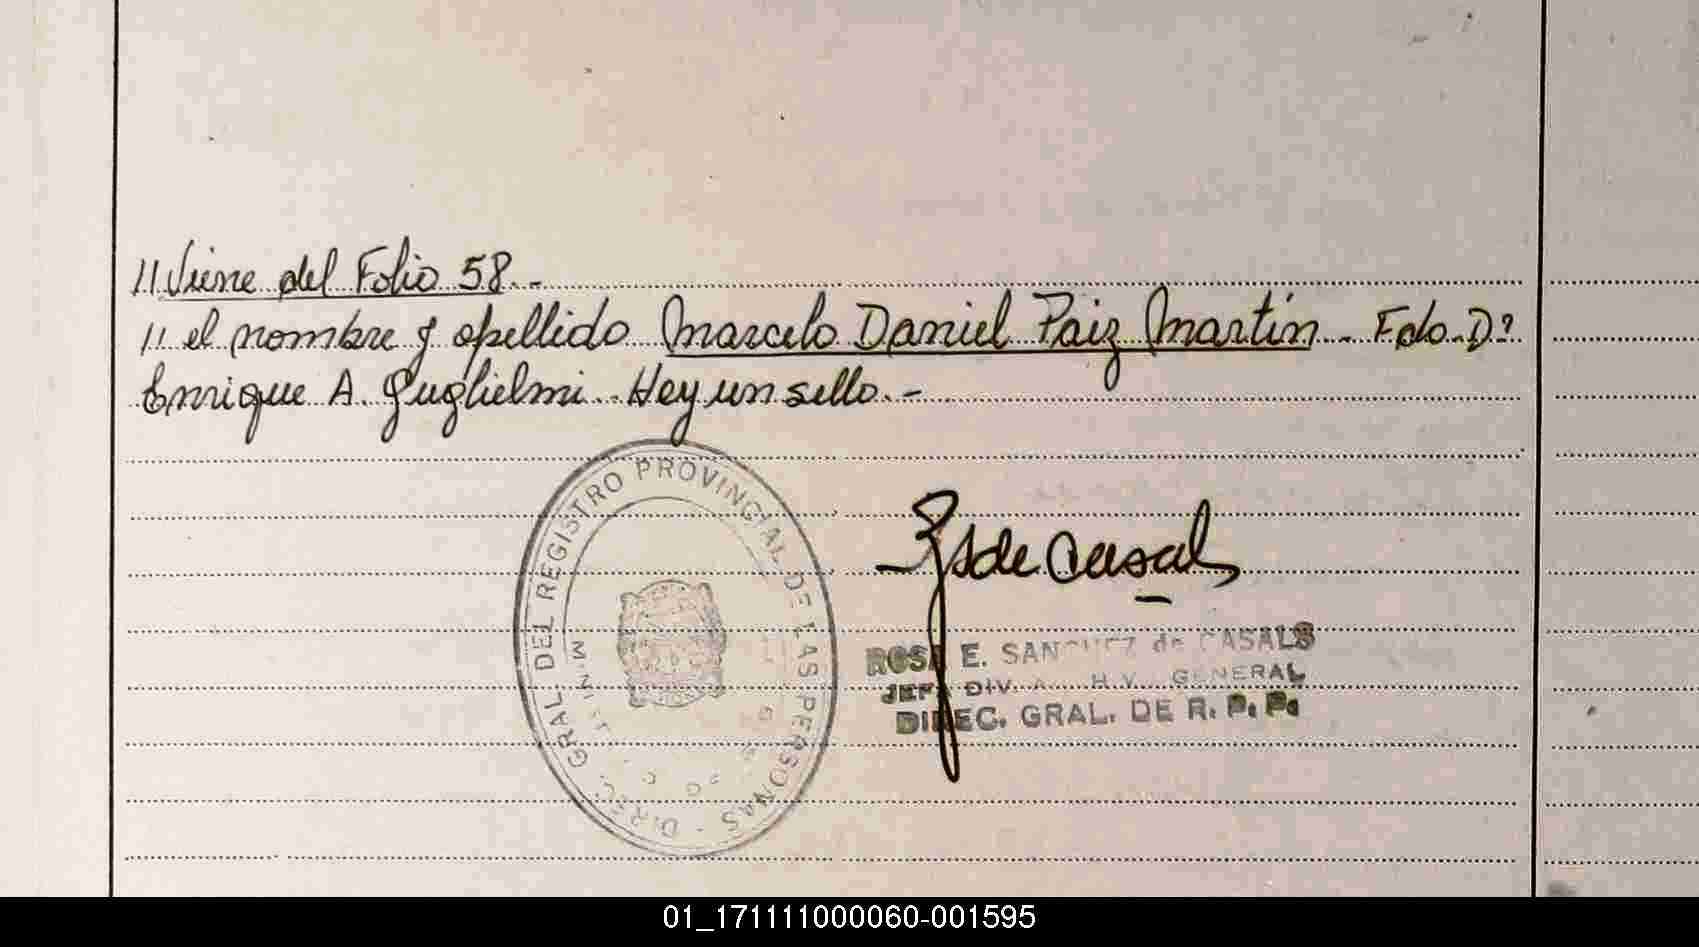 // Viene del Folio 58.-
// el nombre y apellido Marcelo Daniel Paiz Martin.- Fdo. D?
Enrique A. Guglielmi. Hay un sello.-
DIREC. GRAL. DEL REGISTRO PROVINCIAL DE LAS PERSONAS -
de Casals
ROSA E. SANCHEZ de CASALS
JEFA DIV. GENERAL
DIREC. GRAL. DE R. P. P.
01_171111000060-001595